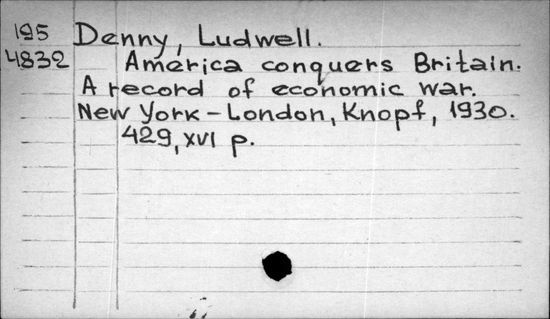 195 Denny, Ludwell.
4832 America conquers Britain.
A record of economic war.
New York - London, Knopf, 1930.
429, XVI p.